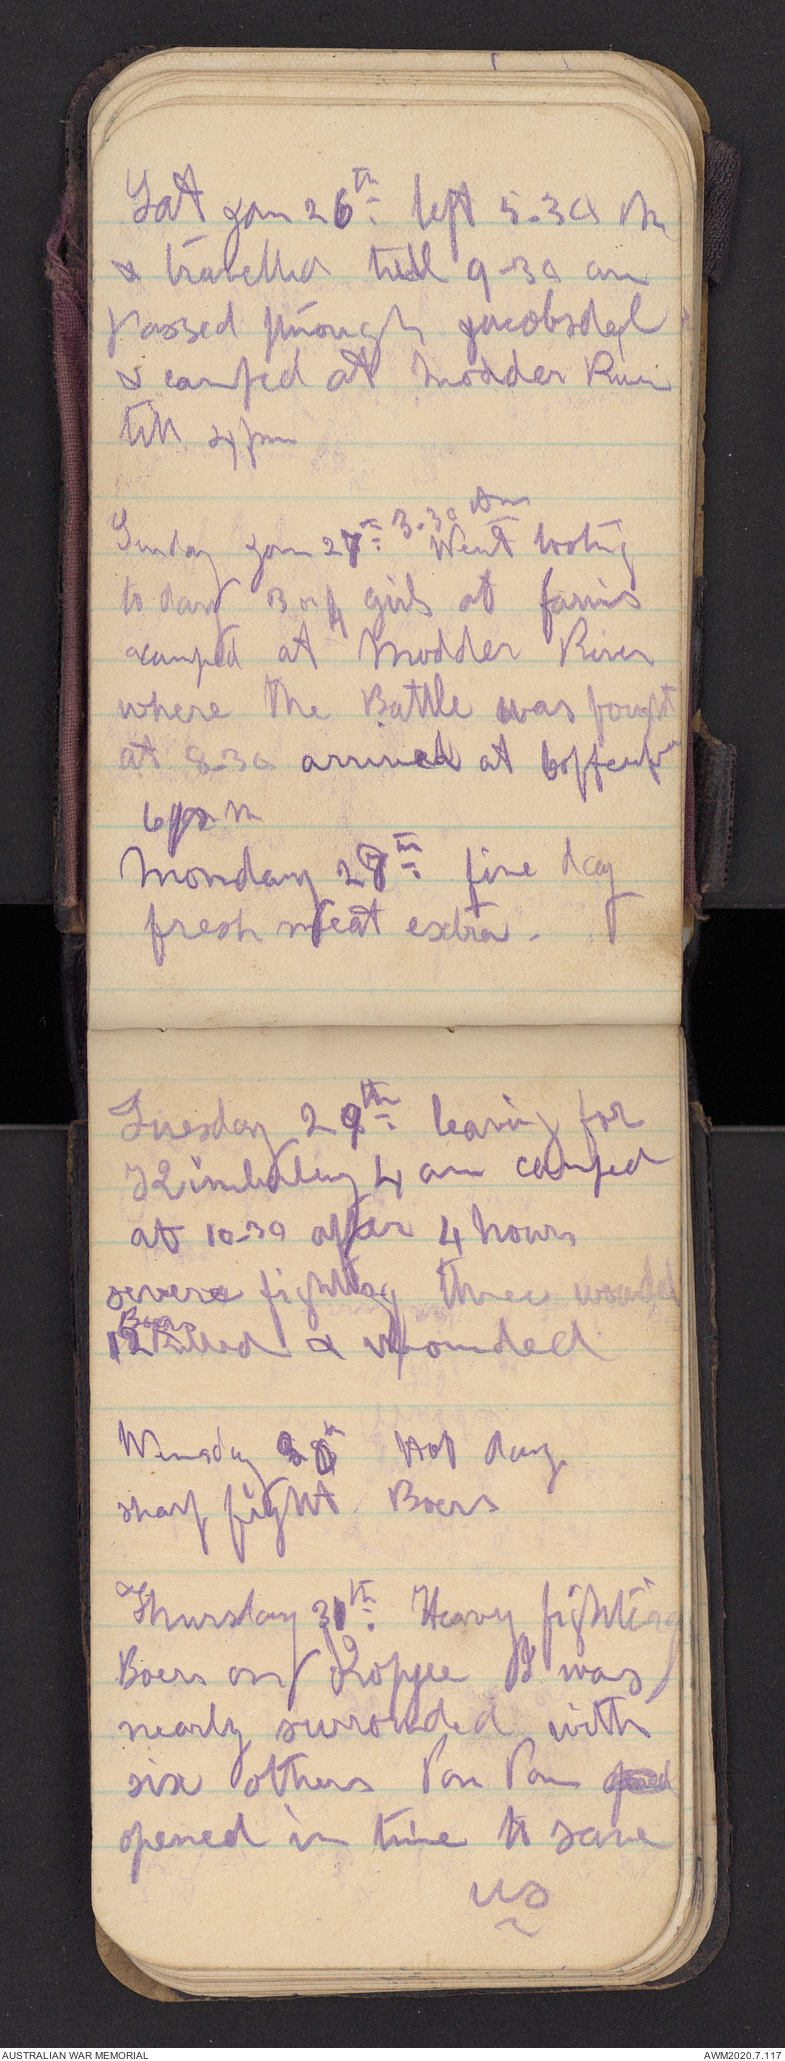 Sat Jan 26th: left 5.30 Am
& travelled till 9-30 am
passed through Jacobsdal
& camped at Modder River
till 4pm
Sunday Jan 27th: 3.30 Am Went looting
to day 3 or 4 girls at farms
camped at Modder River
where the Battle was fought
at 8-30 arrived at
6 pm
Monday 28th: fine day
fresh meat extra.
Tuesday 29th: leaving for
4 am camped
at 10-30 after 4 hours
severe fighting three wounded
12 Boers Killed & wounded
Wensday 30th Hot day
sharp fight Boers
Thursday 31th: Heavy fighting
Boers on Kopjee I was
nearly surrounded with
six others Pom Pom
opened in time to save
us
AUSTRALIAN WAR MEMORIAL
AWM2020.7.117